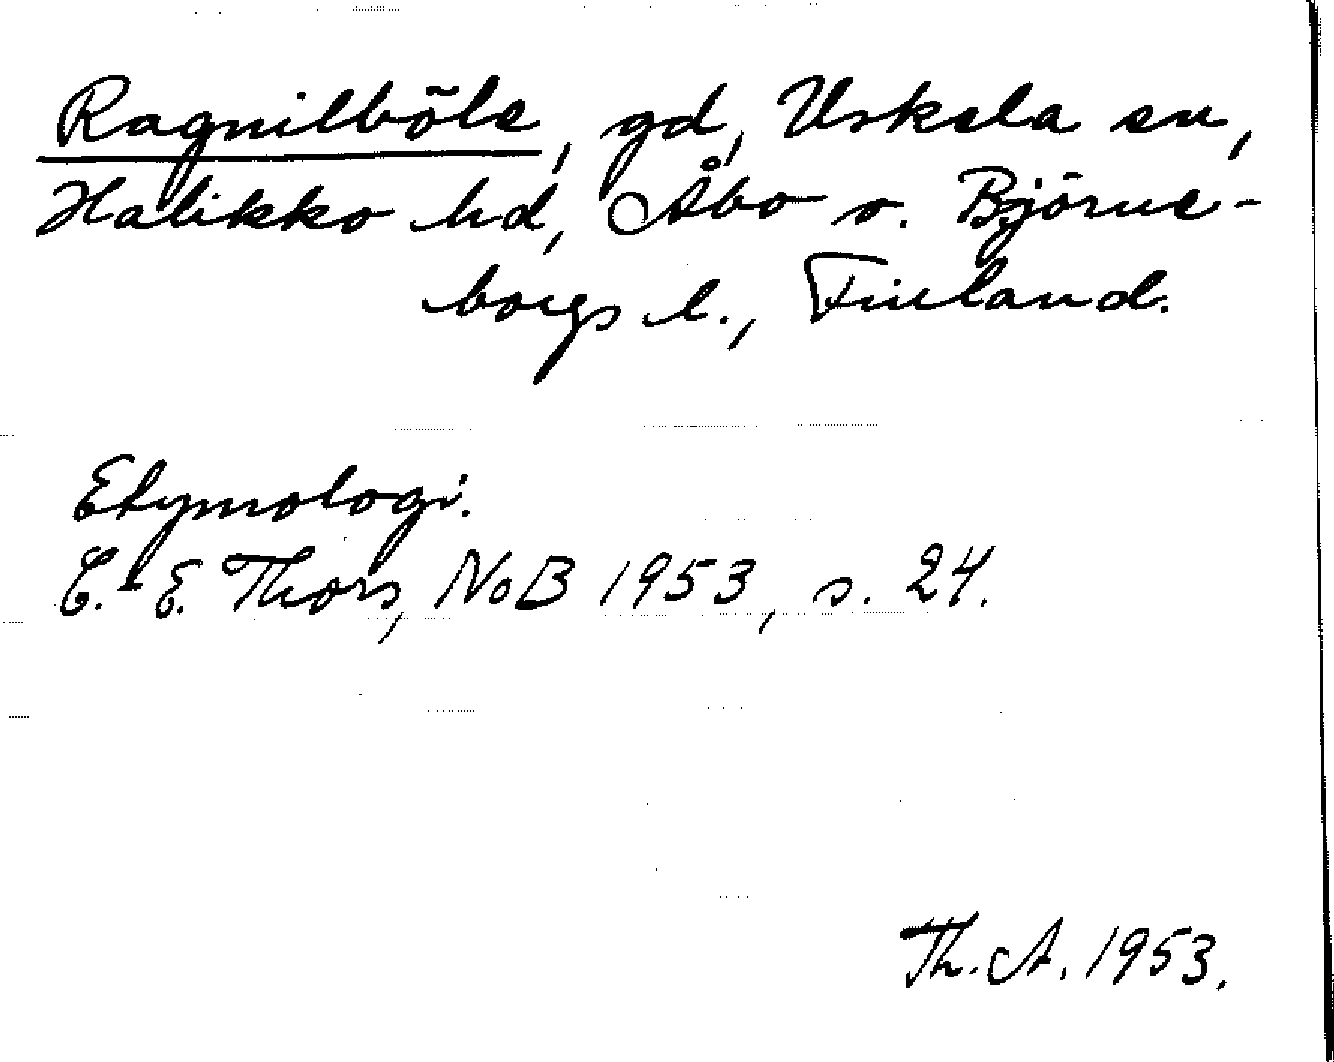 Ragnilböle, gd, Uskela sn,
Halikko hd, Åbo o. Björne-
borgs l., Finland.
Etymologi.
C.-E. Thors, NoB 1953, s. 24.
Th. A. 1953.